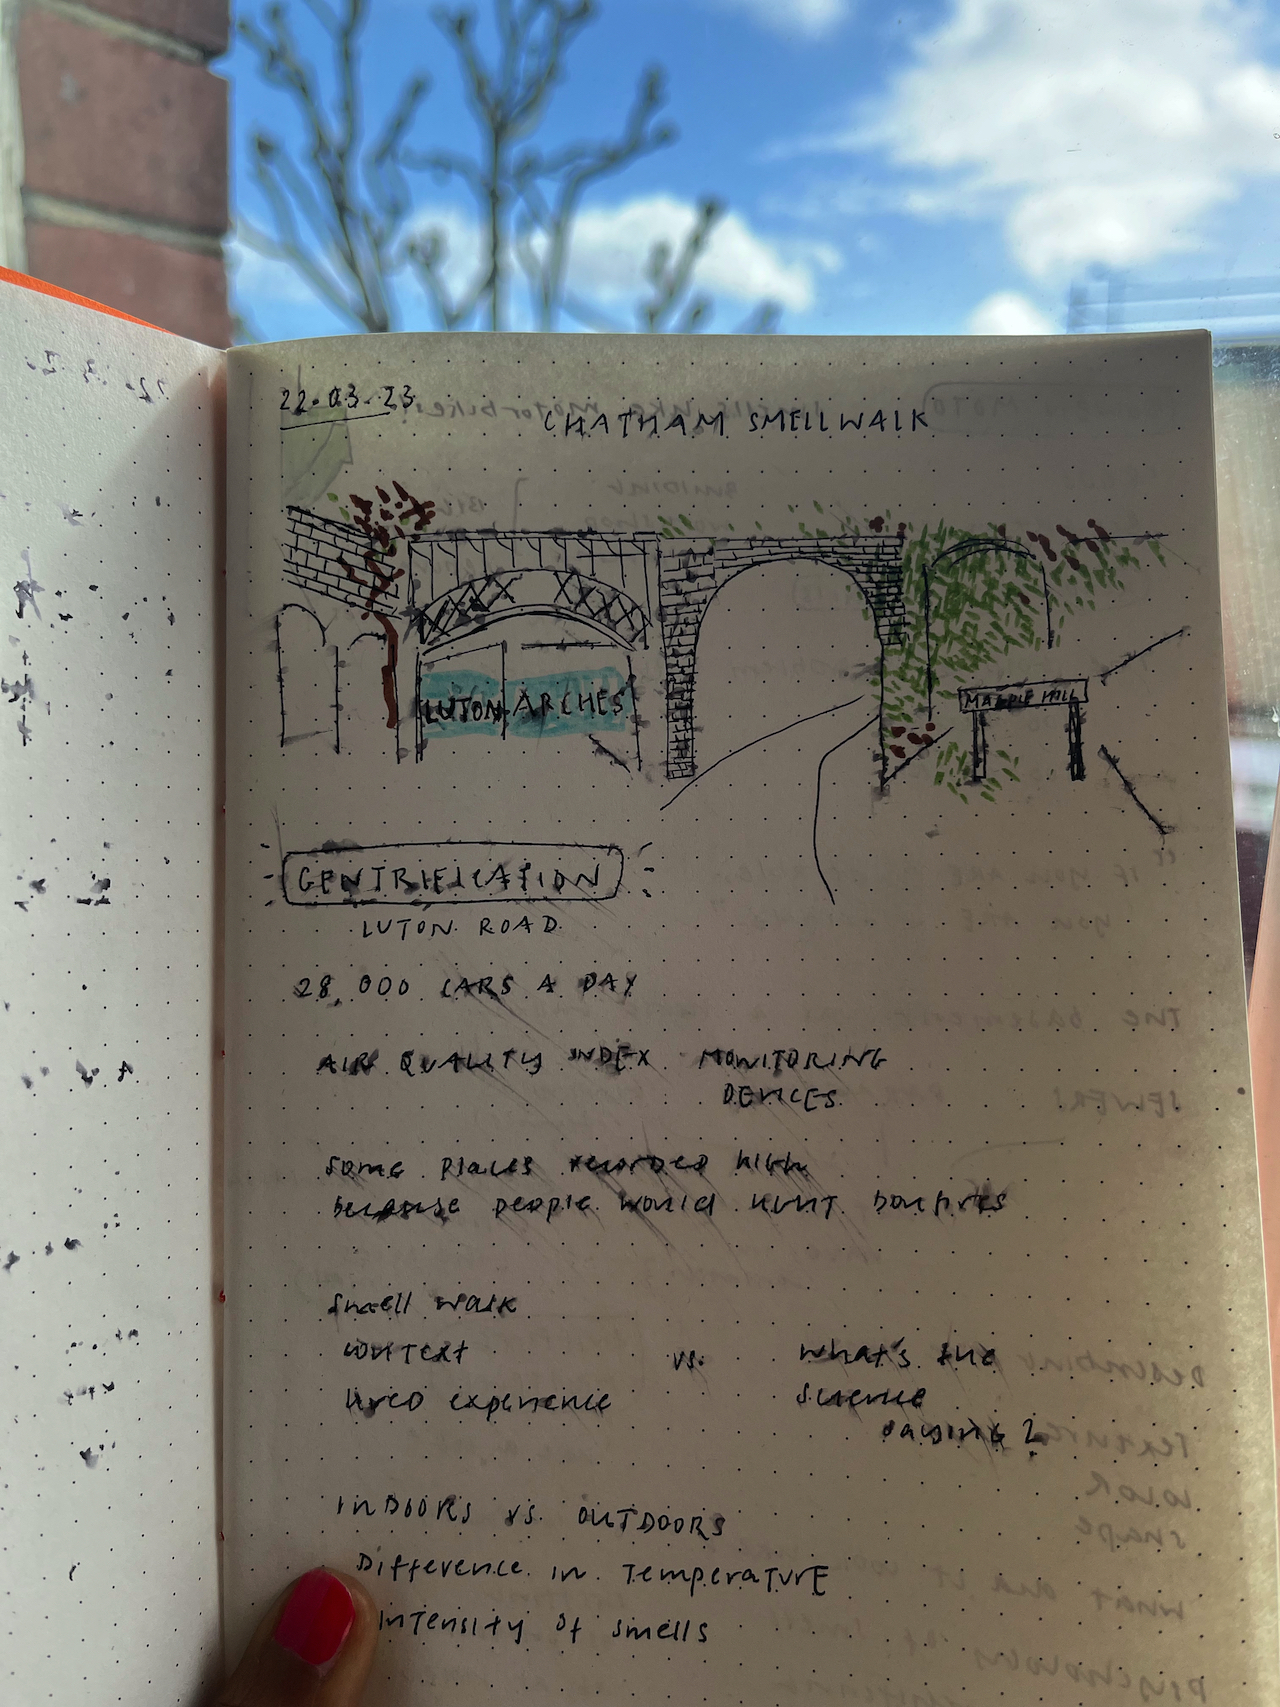 22.03.23
CHATHAM SMELLWALK
LUTON ARCHES
MAGPIE HALL
GENTRIFICATION
LUTON ROAD
28,000 CARS A DAY
AIR QUALITY INDEX MONITORING
DEVICES
some places recorded high
because people would light bonfires
smell walk
context vs. what's the
lived experience science
saying?
INDOORS vs. OUTDOORS
Difference in Temperature
Intensity of smells